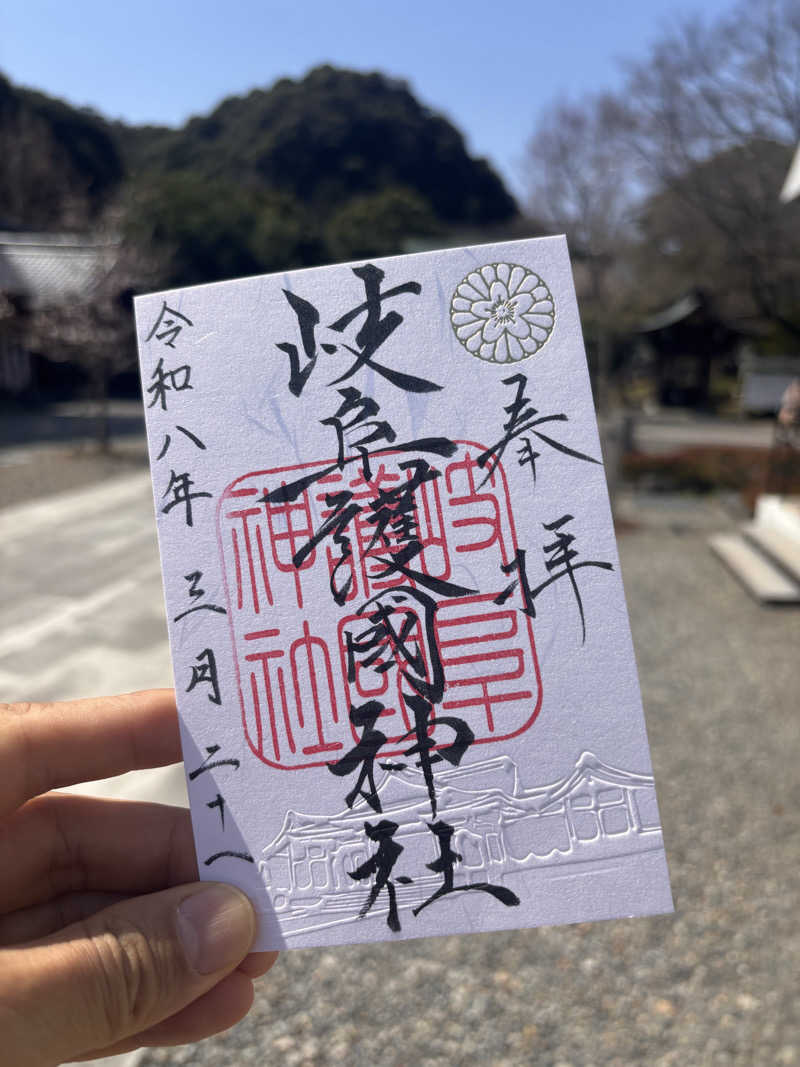 奉拝
岐阜護國神社
岐阜護国神社
令和八年三月二十一